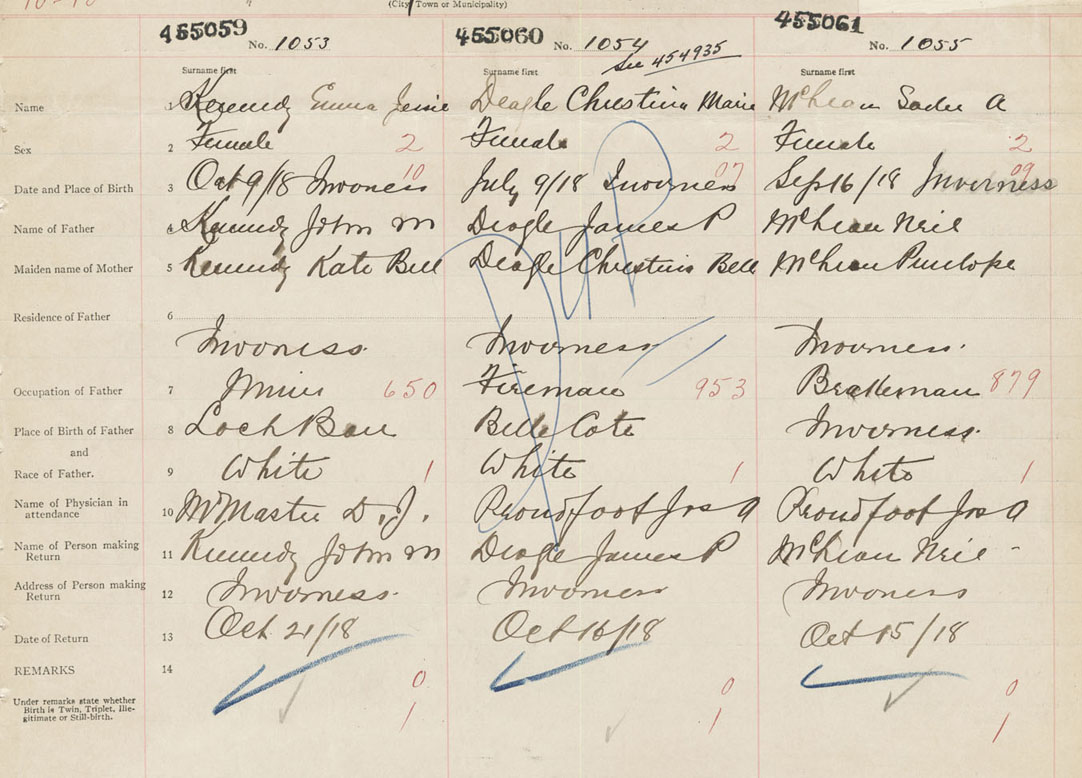 10-10
(City, Town or Municipality)
455059 455060 455061
No. 1053 No. 1054 No. 1055
See 454935
Surname first Surname first Surname first
Name 1 Kennedy Emma Jessie Deagle Christina Marie McLean Sadie A
Sex 2 Female 2 Female 2 Female 2
Date and Place of Birth 3 Oct 9/18 Inverness 10 July 9/18 Inverness 07 Sep 16/18 Inverness 09
Name of Father 4 Kennedy John M Deagle James P McLean Neil
Maiden name of Mother 5 Kennedy Kate Bell Deagle Christina Bell McLean Penelope
DUP
Residence of Father 6
Inverness Inverness Inverness
Occupation of Father 7 Miner 650 Fireman 953 Brakeman 879
Place of Birth of Father 8 Loch Ban Belle Cote Inverness
and
Race of Father. 9 White 1 White 1 White 1
Name of Physician in
attendance 10 McMaster D. J. Proudfoot Jas A Proudfoot Jas A
Name of Person making
Return 11 Kennedy John M Deagle James P McLean Neil
Address of Person making
Return 12 Inverness Inverness Inverness
Date of Return 13 Oct 21/18 Oct 16/18 Oct 15/18
REMARKS 14
0 0 0
Under remarks state whether
Birth is Twin, Triplet, Ille-
gitimate or Still-birth.
1 1 1